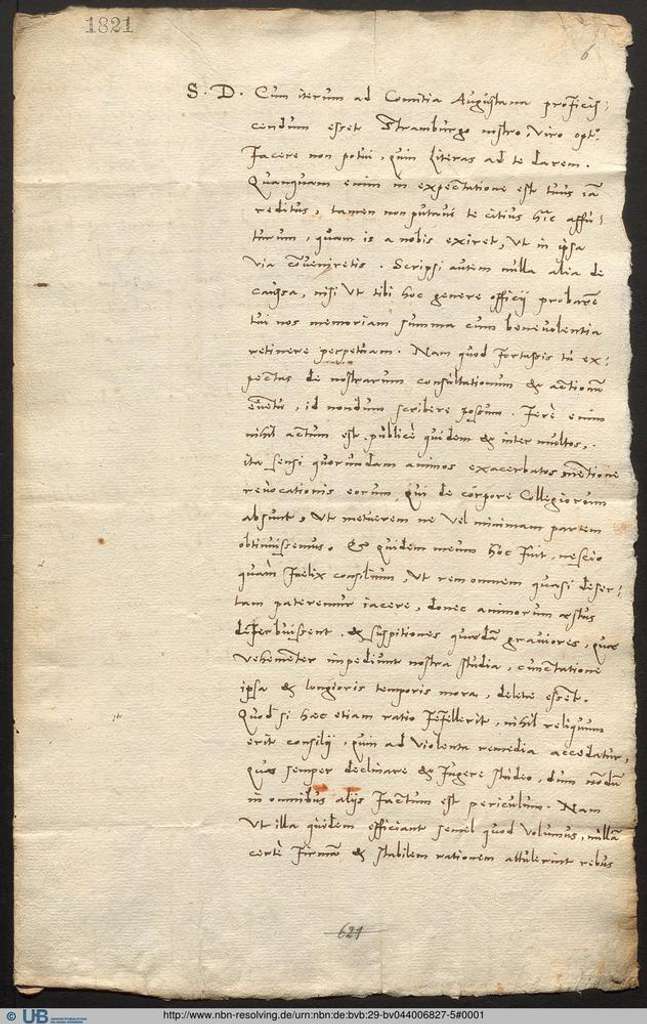 1821
6
S. D. Cum iterum ad Comitia Augustana proficis:
cendum esset Stramburgo nostro, Viro opt°.
facere non potui, quin literas ad te darem.
Quanquam enim in expectatione est tuus iā
reditus, tamen non putavi te citius hīc affu:
turum, quam is a nobis exiret, Ut in ipsa
via cōveniretis. Scripsi autem nulla alia de
caussa, nisi Ut tibi hoc genere officij probarē
tui nos memoriam summa cum benevolentia
retinere perpetuam. Nam quod fortassis tu ex:
pectas de nostrarum consultationum & actionū
eventu, id nondum scribere possum. Ferè enim
nihil actum est publicè quidem & inter multos,
ita sensi quorundam animos exacerbatos mentione
revocationis eorum, qui de corpore Collegiorum
absunt, Ut metuerem ne Vel minimam partem
obtinuissemus. & quidem meum hoc fuit, nescio
quàm foelix consilium, Ut rem omnem quasi deser:
tam pateremur iacere, donec animorum æstus
deferbuissent, & suspitiones quædā graviores, quæ
vehementer impediunt nostra studia, cunctatione
ipsa & longioris temporis mora, deletæ essent.
Quod si hæc etiam ratio fefellerit, nihil reliquum
erit consilij, quin ad violenta remedia accedatur,
quæ semper declinare & fugere studeo, dum nōdū
in omnibus alijs factum est periculum. Nam
Ut illa quidem efficiant semel quod Volumus, nullā
certè firmā & stabilem rationem attulerint rebus
621
UB
http://www.nbn-resolving.de/urn:nbn:de:bvb:29-bv044006827-5#0001